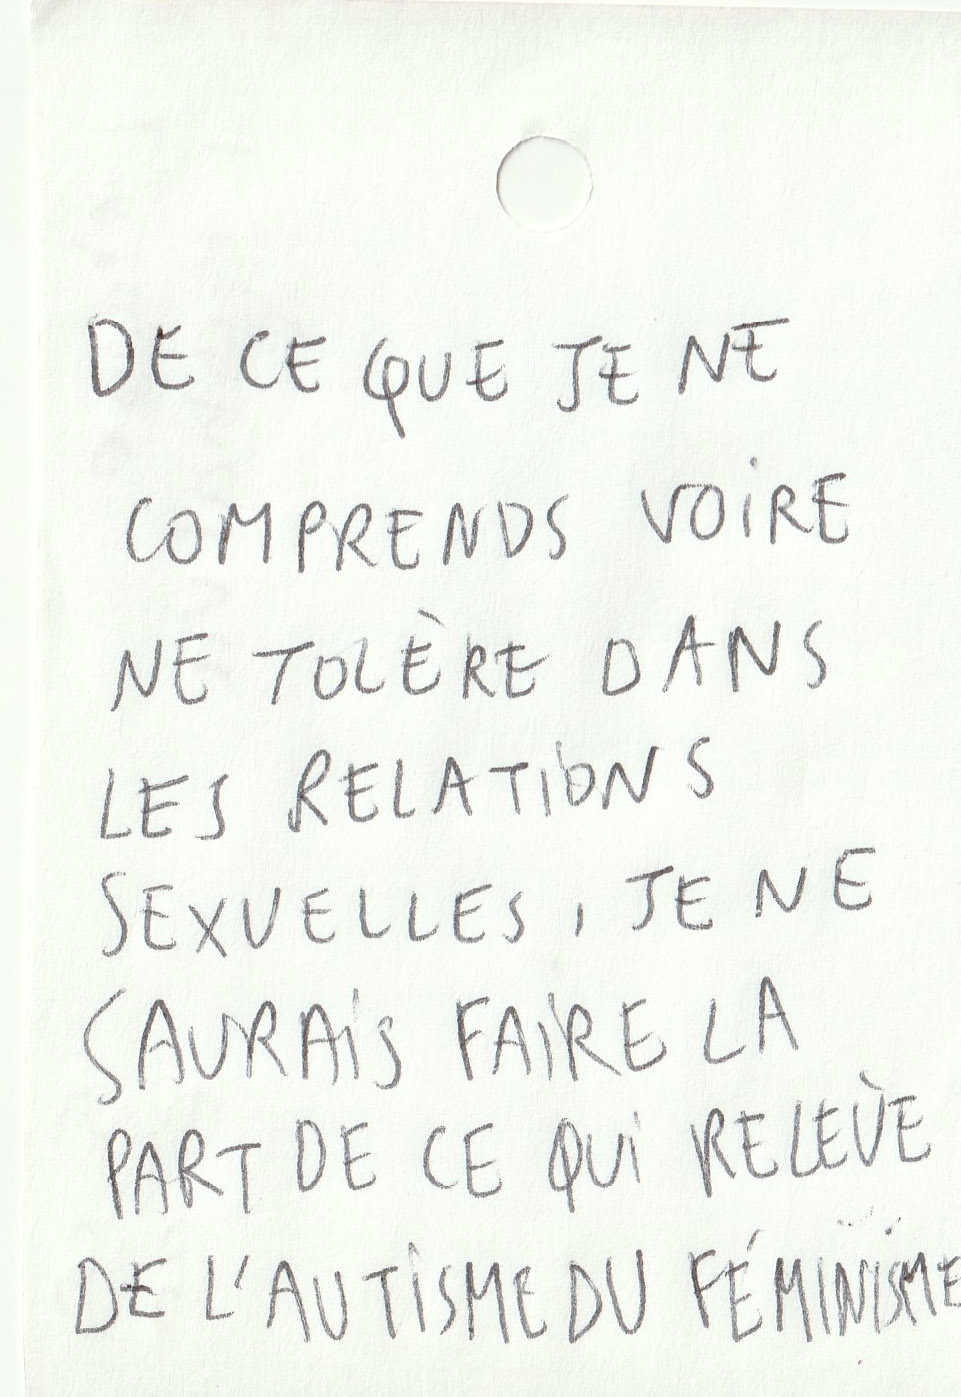 DE CE QUE JE NE
COMPRENDS VOIRE
NE TOLÈRE DANS
LES RELATIONS
SEXUELLES, JE NE
SAURAIS FAIRE LA
PART DE CE QUI RELÈVE
DE L'AUTISME DU FÉMINISME